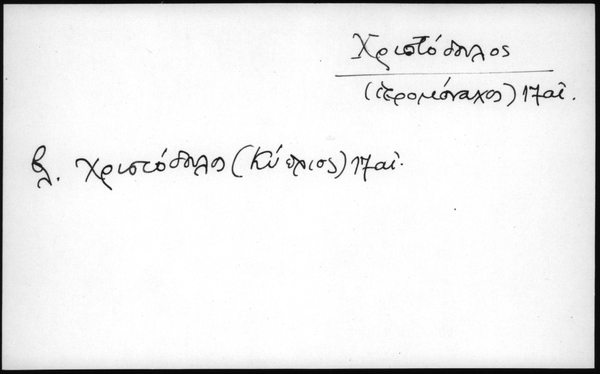 Χριστόδουλος
(ἱερομόναχος) 17 αἰ.
βλ. Χριστόδουλος (Κύπριος) 17 αἰ.